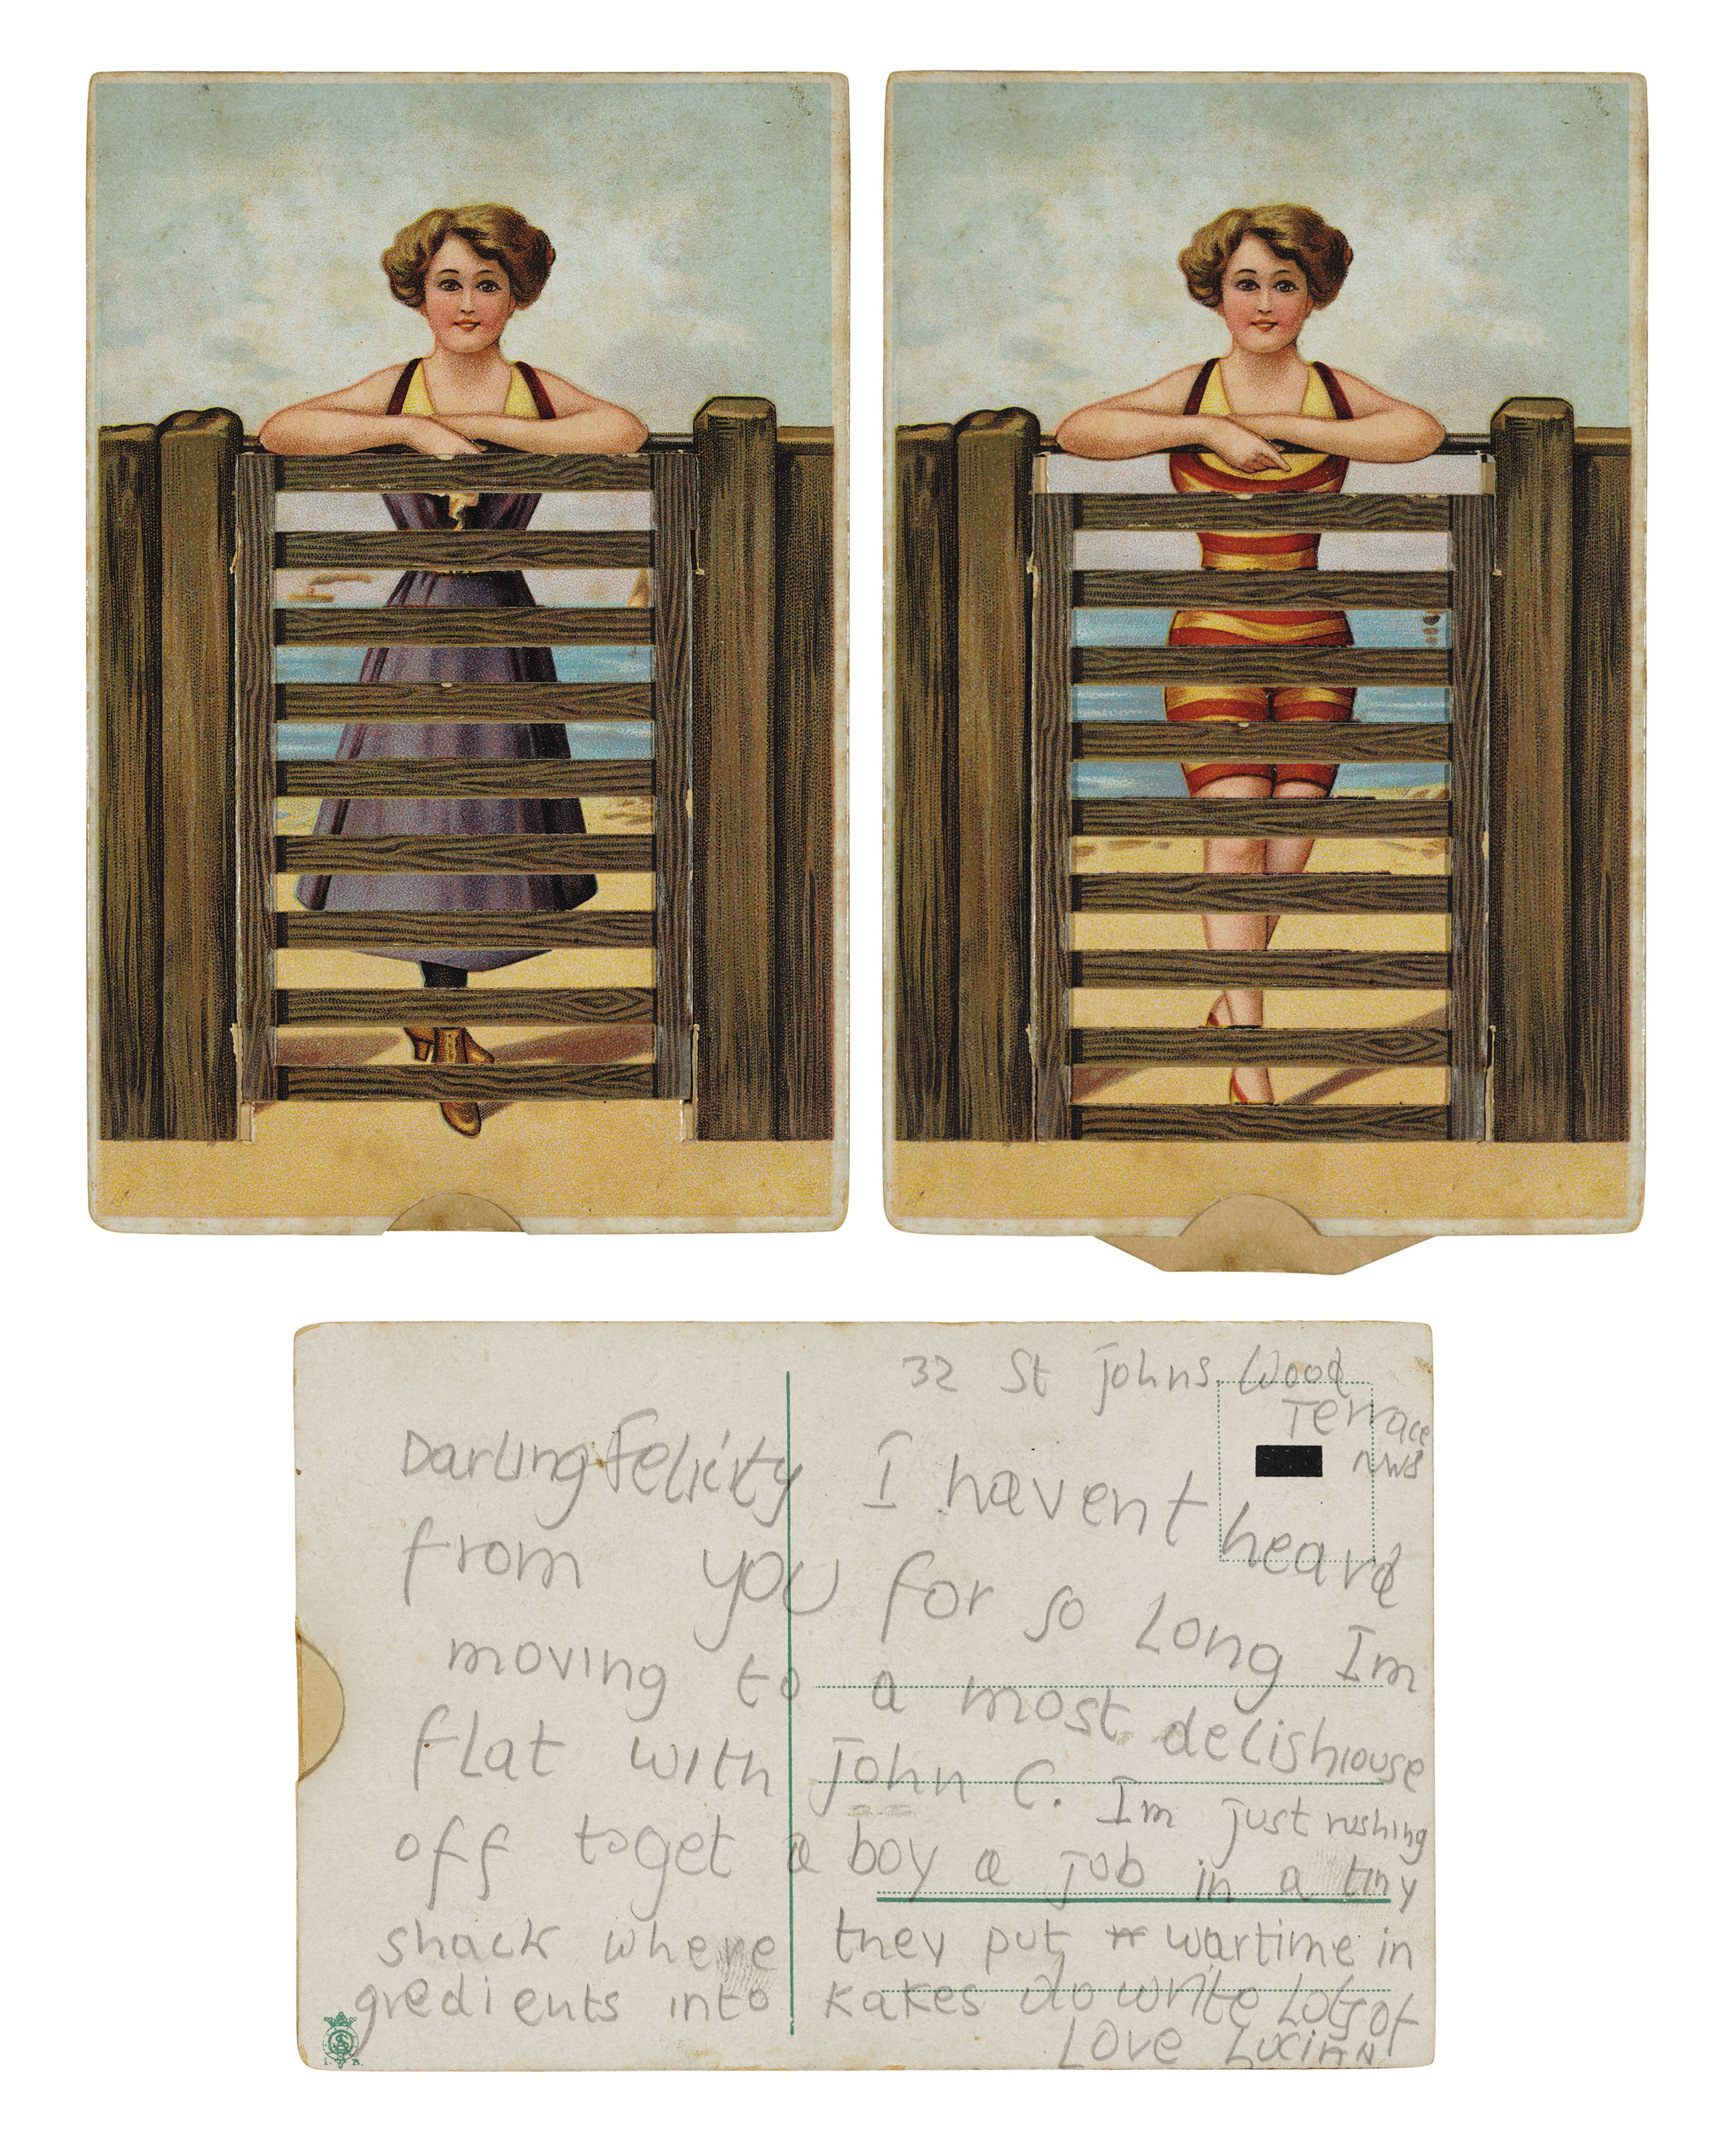 32 St Johns Wood
Terrace
NW8
Darling Felicity I havent heard
from you for so long Im
moving to a most delishiouse
flat with John C. Im just rushing
off to get a boy a job in a tiny
shack where they put wartime in
gredients into kakes do write Lots of
Love Lucian